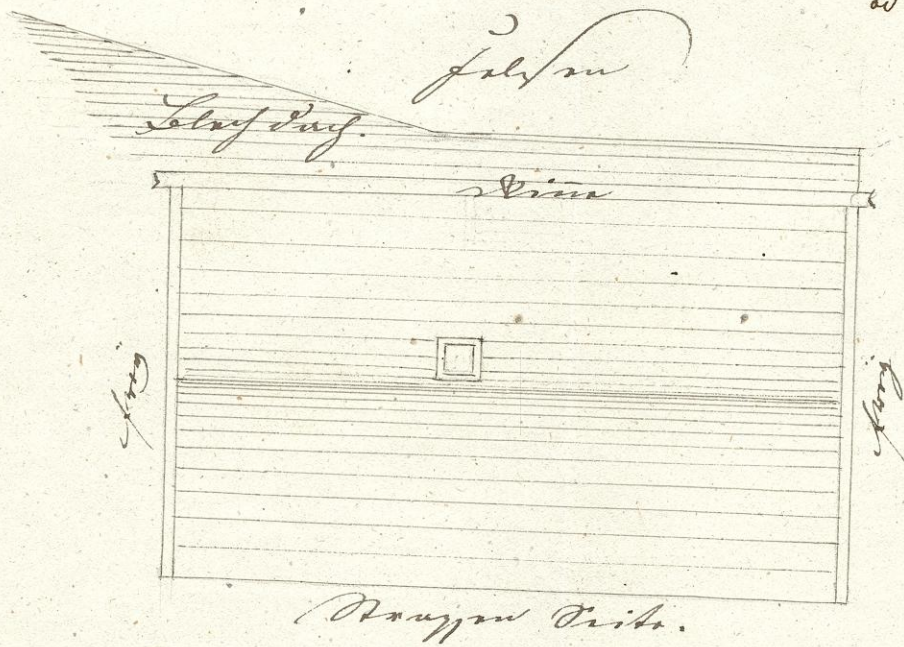 Felsen
Blechdach.
Rinne
frey
frey
Strassen Seite.